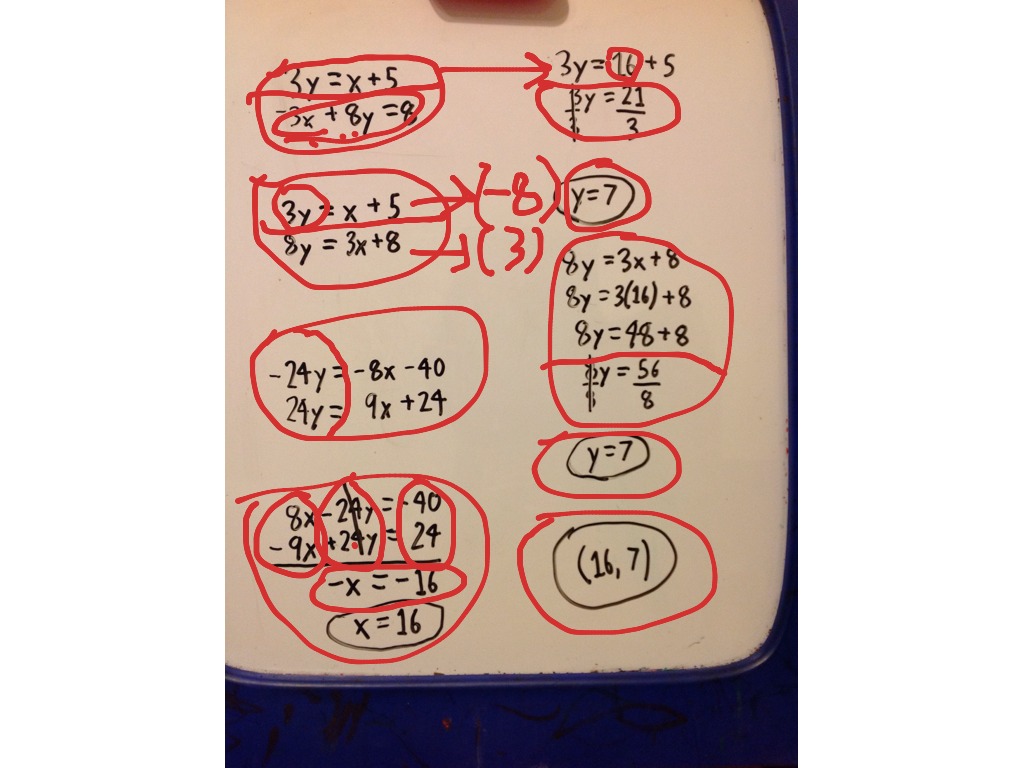 3y = x + 5
-3x + 8y = 8
3y = x + 5 (-8)
8y = 3x + 8 (3)
-24y = -8x - 40
24y = 9x + 24
8x - 24y = -40
-9x + 24y = 24
-x = -16
x = 16
3y = 16 + 5
3y = 21
3 3
y = 7
8y = 3x + 8
8y = 3(16) + 8
8y = 48 + 8
8y = 56
8 8
y = 7
(16, 7)